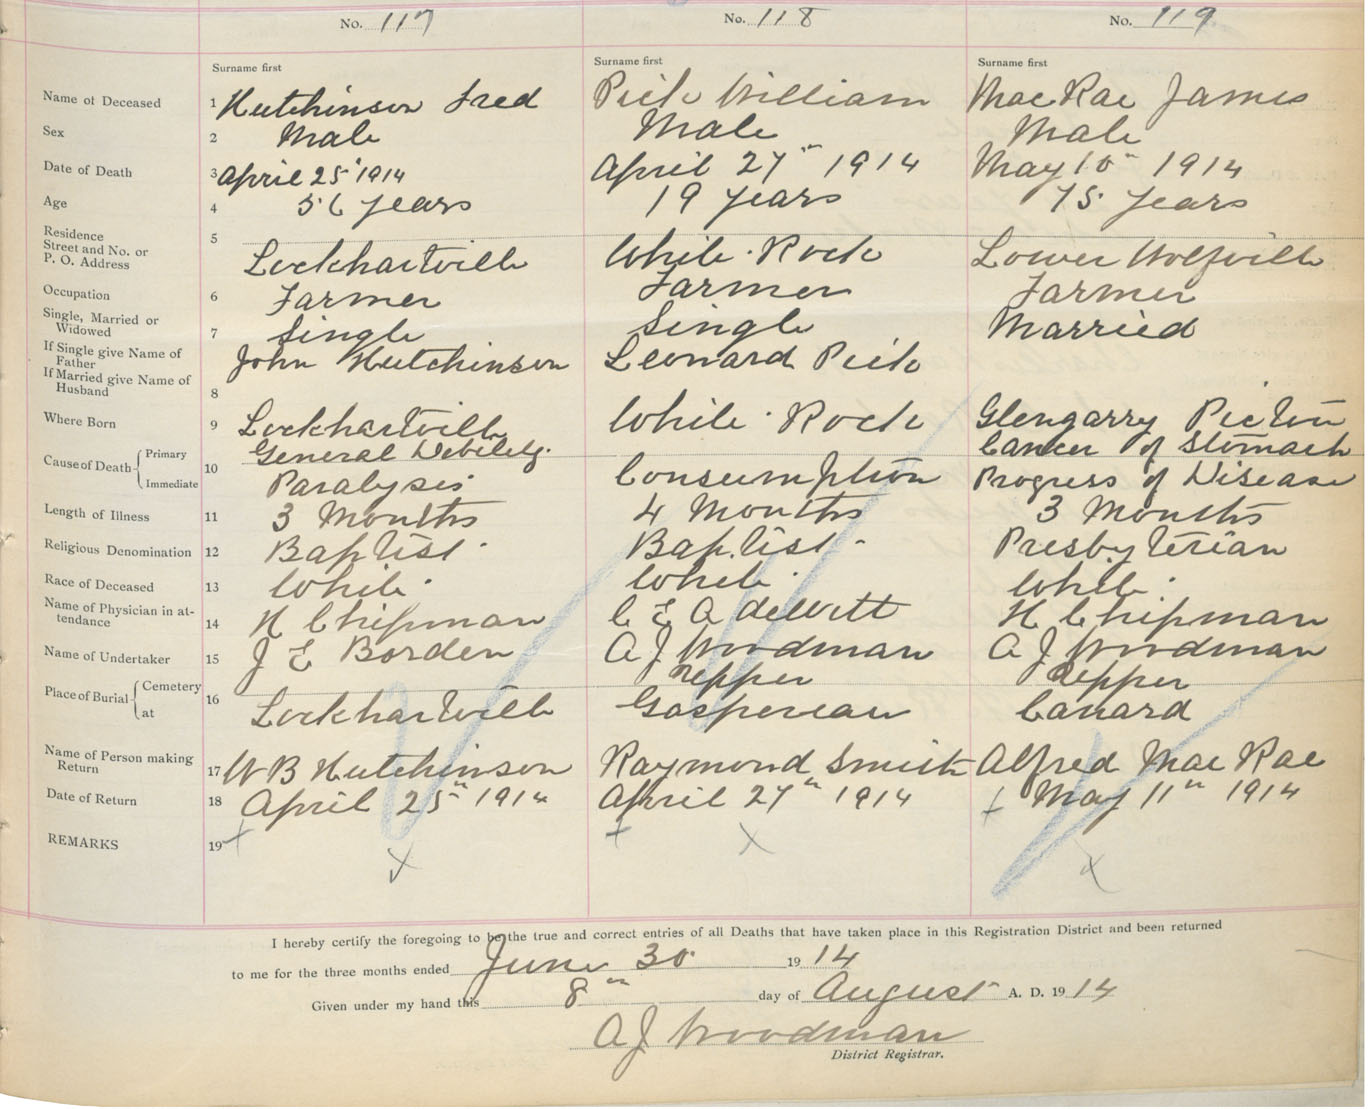 No. 117 No. 118 No. 119
Surname first Surname first Surname first
Name of Deceased 1 Hutchinson Fred Pick William MacRae James
Sex 2 Male Male Male
Date of Death 3 April 25" 1914 April 27" 1914 May 10" 1914
Age 4 56 years 19 years 75 years
Residence
Street and No. or
P. O. Address 5 Lockhartville White Rock Lower Wolfville
Occupation 6 Farmer Farmer Farmer
Single, Married or
Widowed 7 Single Single Married
If Single give Name of
Father John Hutchinson Leonard Pick
If Married give Name of
Husband 8
Where Born 9 Lockhartville White Rock Glengarry Pictou
Cause of Death Primary General Debility Cancer of Stomach
Immediate 10 Paralysis Consumption Progress of Disease
Length of Illness 11 3 Months 4 Months 3 Months
Religious Denomination 12 Baptist Baptist Presbyterian
Race of Deceased 13 White White White
Name of Physician in at-
tendance 14 H Chipman C E A deWitt H Chipman
Name of Undertaker 15 J E Borden A J Woodman A J Woodman
Place of Burial Cemetery Upper Upper
at 16 Lockhartville Gaspereau Canard
Name of Person making
Return 17 W B Hutchinson Raymond Smith Alfred Mac Rae
Date of Return 18 April 25" 1914 April 27" 1914 May 11" 1914
REMARKS 19
I hereby certify the foregoing to be the true and correct entries of all Deaths that have taken place in this Registration District and been returned
to me for the three months ended June 30 19 14
Given under my hand this 8th day of August A. D. 19 14
A J Woodman
District Registrar.